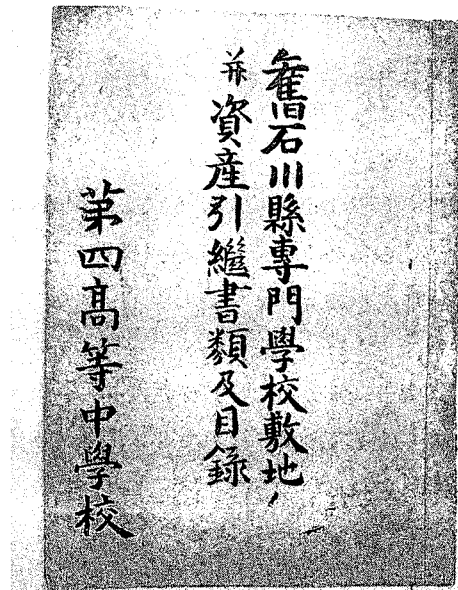 舊石川縣專門學校敷地ノ
并資産引繼書類及目錄
第四高等中學校